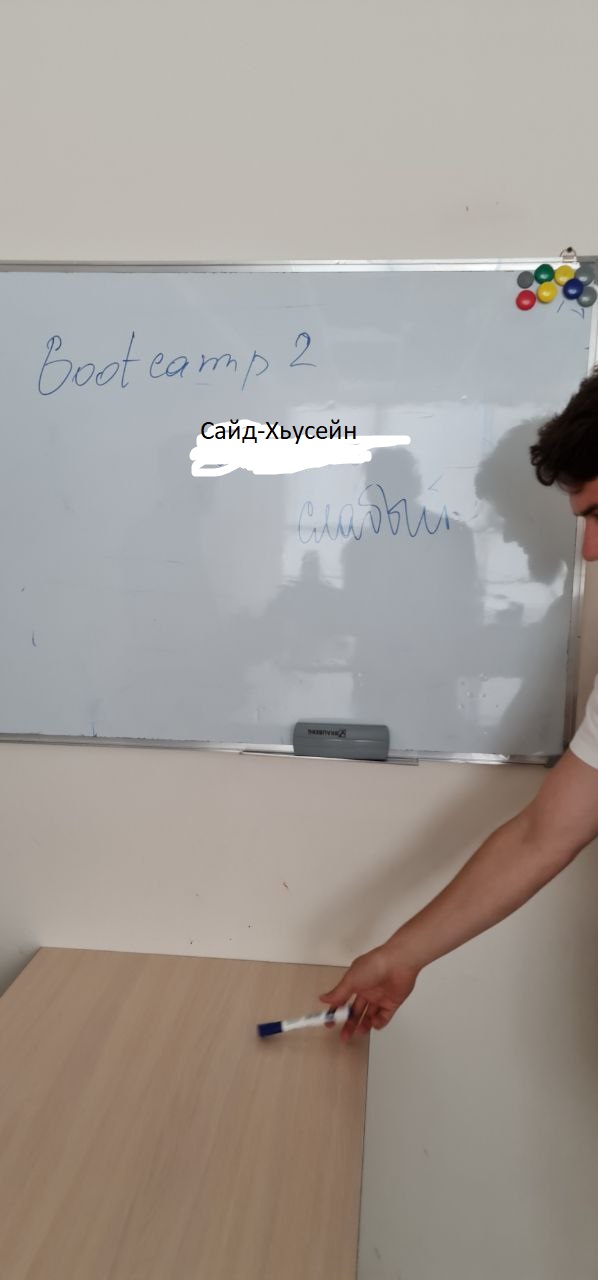 Bootcamp 2
Сайд-Хьусейн
слабый
BRAUBERG